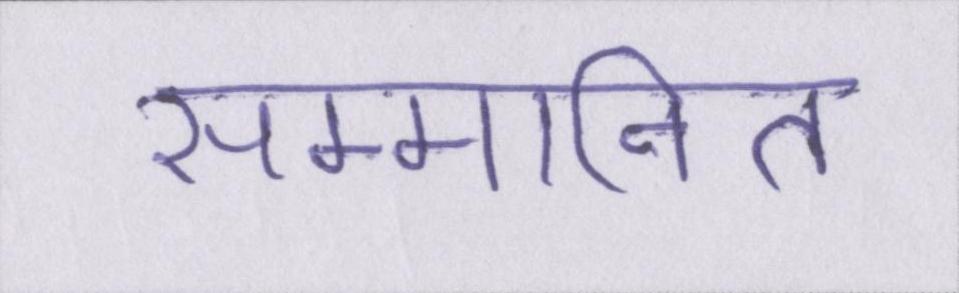 सम्मानित